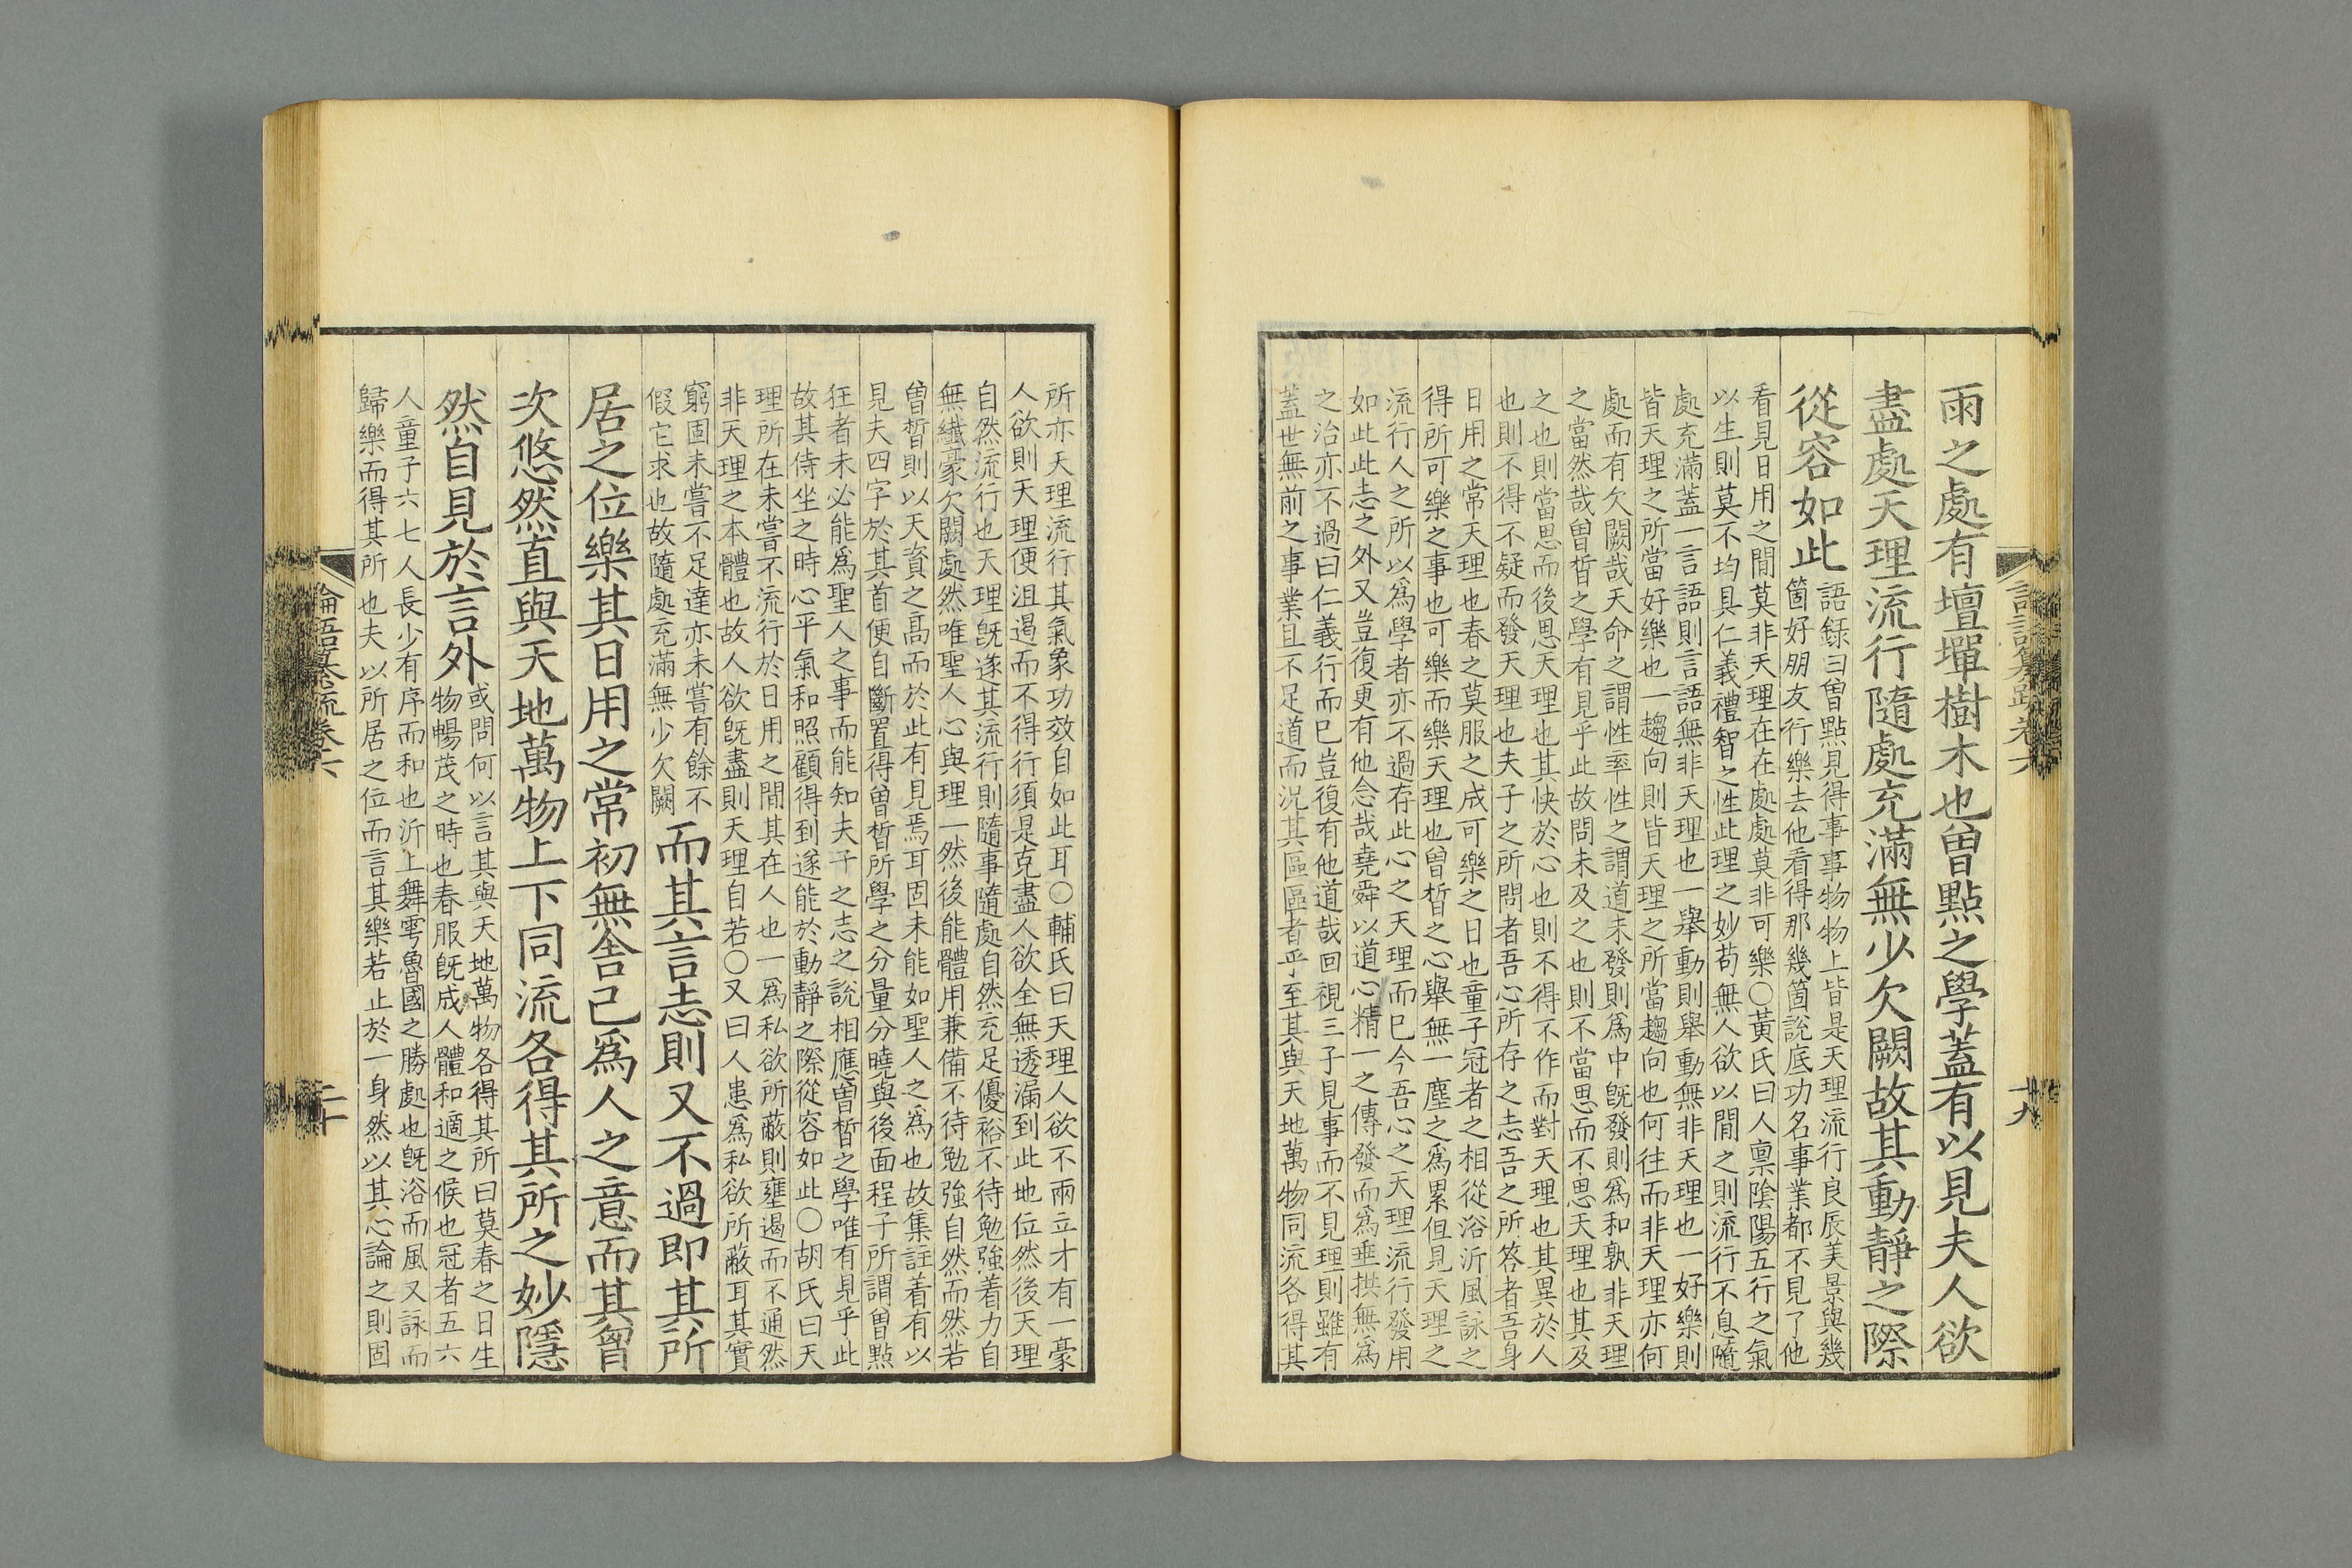 雨之處有壇墠樹木也曾點之學蓋有以見夫人欲
盡處天理流行隨處充滿無少欠闕故其動靜之際
從容如此
語録曰曾點見得事事物物上皆是天理流行良辰美景與幾
箇好朋友行樂去他看得那幾箇說底功名事業都不見了他
看見日用之間莫非天理在在處處莫非可樂○黃氏曰人禀陰陽五行之氣
以生則莫不均具仁義禮智之性此理之妙苟無人欲以間之則流行不息隨
處充滿蓋一言語則言語無非天理也一舉動則舉動無非天理也一好樂則
皆天理之所當好樂也一趨向則皆天理之所當趨向也何往而非天理亦何
處而有欠闕哉天命之謂性率性之謂道未發則爲中旣發則爲和孰非天理
之當然哉曾晳之學有見乎此故問未及之也則不當思而不思天理也其及
之也則當思而後思天理也其快於心也則不得不作而對天理也其異於人
也則不得不疑而發天理也夫子之所問者吾心所存之志吾之所答者吾身
日用之常天理也春之莫服之成可樂之日也童子冠者之相從浴沂風詠之
得所可樂之事也可樂而樂天理也曾晳之心舉無一塵之爲累但見天理之
流行人之所以爲學者亦不過存此心之天理而已今吾心之天理流行發用
如此此志之外又豈復更有他念哉堯舜以道心精一之傳發而爲垂拱無爲
之治亦不過曰仁義行而已豈復有他道哉回視三子見事而不見理則雖有
蓋世無前之事業且不足道而況其區區者乎至其與天地萬物同流各得其
論語纂疏卷六
十九
所亦天理流行其氣象功效自如此耳○輔氏曰天理人欲不兩立才有一豪
人欲則天理便沮遏而不得行須是克盡人欲全無透漏到此地位然後天理
自然流行也天理旣遂其流行則隨事隨處自然充足優裕不待勉強着力自
無纖豪欠闕處然唯聖人心與理一然後能體用兼備不待勉強自然而然若
曾晳則以天資之高而於此有見焉耳固未能如聖人之爲也故集註着有以
見夫四字於其首便自斷置得曾晳所學之分量分曉與後面程子所謂曾點
狂者未必能爲聖人之事而能知夫子之志之說相應曾晳之學唯有見乎此
故其侍坐之時心平氣和照顧得到遂能於動靜之際從容如此○胡氏曰天
理所在未嘗不流行於日用之間其在人也一爲私欲所蔽則壅遏而不通然
非天理之本體也故人欲旣盡則天理自若○又曰人患爲私欲所蔽耳其實
窮固未嘗不足達亦未嘗有餘不
假它求也故隨處充滿無少欠闕
而其言志則又不過即其所
居之位樂其日用之常初無舍己爲人之意而其胷
次悠然直與天地萬物上下同流各得其所之妙隱
然自見於言外
或問何以言其與天地萬物各得其所曰莫春之日生
物暢茂之時也春服旣成人體和適之候也冠者五六
人童子六七人長少有序而和也沂上舞雩魯國之勝處也旣浴而風又詠而
歸樂而得其所也夫以所居之位而言其樂若止於一身然以其心論之則固
論語纂疏卷六
二十